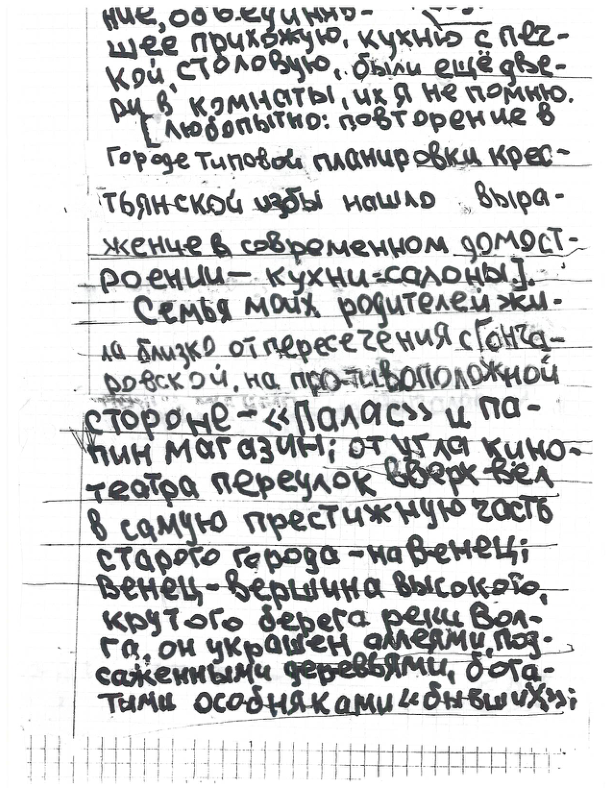 ние, объединяю-
щее прихожую, кухню с печ-
кой, столовую, были ещё две-
ри в комнаты, их я не помню.
[Любопытно: повторение в
городе типовой планировки крес-
тьянской избы нашло выра-
жение в современном домост-
роении — кухни-салоны].
Семья моих родителей жи-
ла близко от пересечения с Гонча-
ровской, на противоположной
стороне - «Палас» и па-
пин магазин; от угла кино-
театра переулок вверх вёл
в самую престижную часть
старого города - на Венец;
Венец - вершина высокого,
крутого берега реки Вол-
га, он украшен аллеями, поз-
саженными деревьями, бога-
тыми особняками «бывших»;